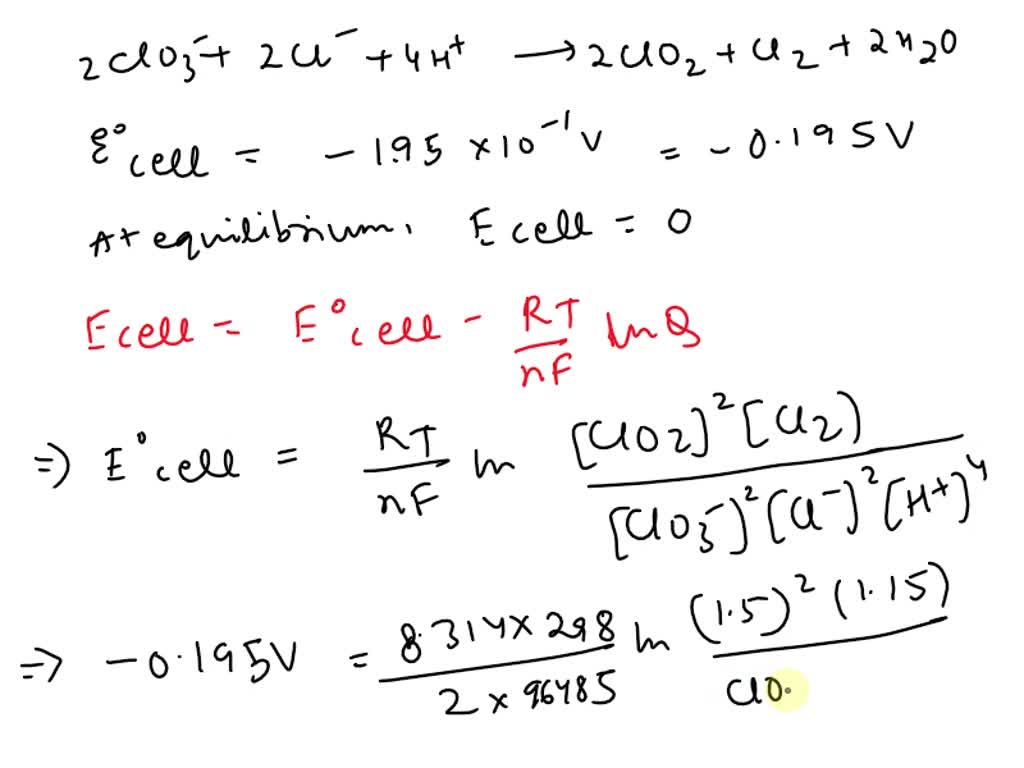 2ClO₃⁻ + 2Cl⁻ + 4H⁺ → 2ClO₂ + Cl₂ + 2H₂O
ε°cell = - 1.95 × 10⁻¹ V = - 0.195V
At equilibrium, Ecell = 0
Ecell = E°cell - RT/nF ln Q
⇒ E°cell = RT/nF ln [ClO₂]²[Cl₂)/[ClO₃⁻)²[Cl⁻)²[H⁺)⁴
⇒ -0.195V = 8.314×298/2×96485 ln (1.5)²(1.15)/ClO